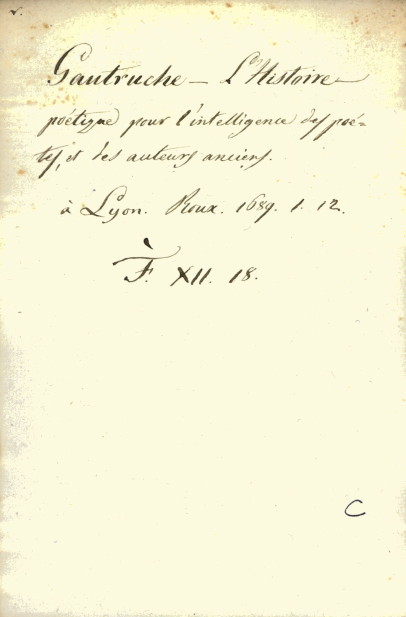 Gautruche — L'Histoire
poétique pour l'intelligence des poé-
tes, et des auteurs anciens.
à Lyon. Roux. 1689. 1. 12.
F. XII. 18.
C